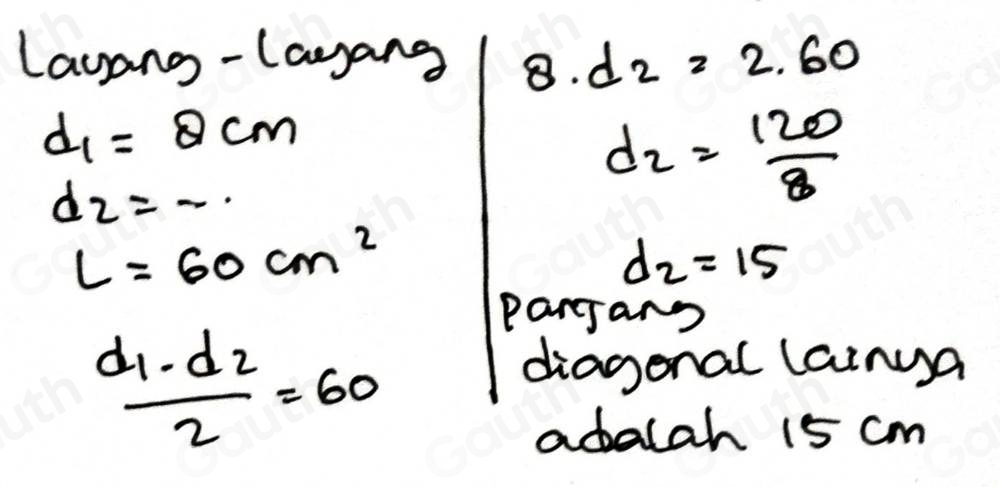 Layang-layang
d1 = 8 cm
d2 = ...
L = 60 cm²
d1 . d2 / 2 = 60
8 . d2 = 2 . 60
d2 = 120 / 8
d2 = 15
Panjang
diagonal lainnya
adalah 15 cm